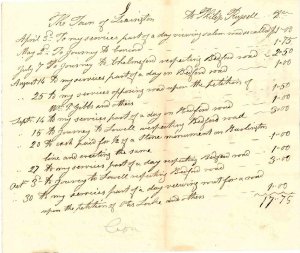 The Town of Lexington To Philip Russell Dr
April 5 To my services part of a day viewing
May 2 To Journey to Concord 1-75
July 7 To Journey to Chelmsford respecting Bedford road 2-50
August 14 to my services part of a day on Bedford road 1-00
25 to my services opposing road upon the petition of
Wm. Gibbs and others 1-50
Sept. 14 to my services part of a day on Bedford road 1-00
15 to Journey to Lowell respecting Bedford road 3-00
20 to cash paid for 1/2 of a Stone monument on Burlington
line and erecting the same 1-00
27 to my services part of a day respecting Bedford road 1-00
Oct to Journey to Lowell respecting Bedford road 3-00
30 to my services part of a day viewing rout for a road
upon the petition of Otis Locke and others 1-00
17-75